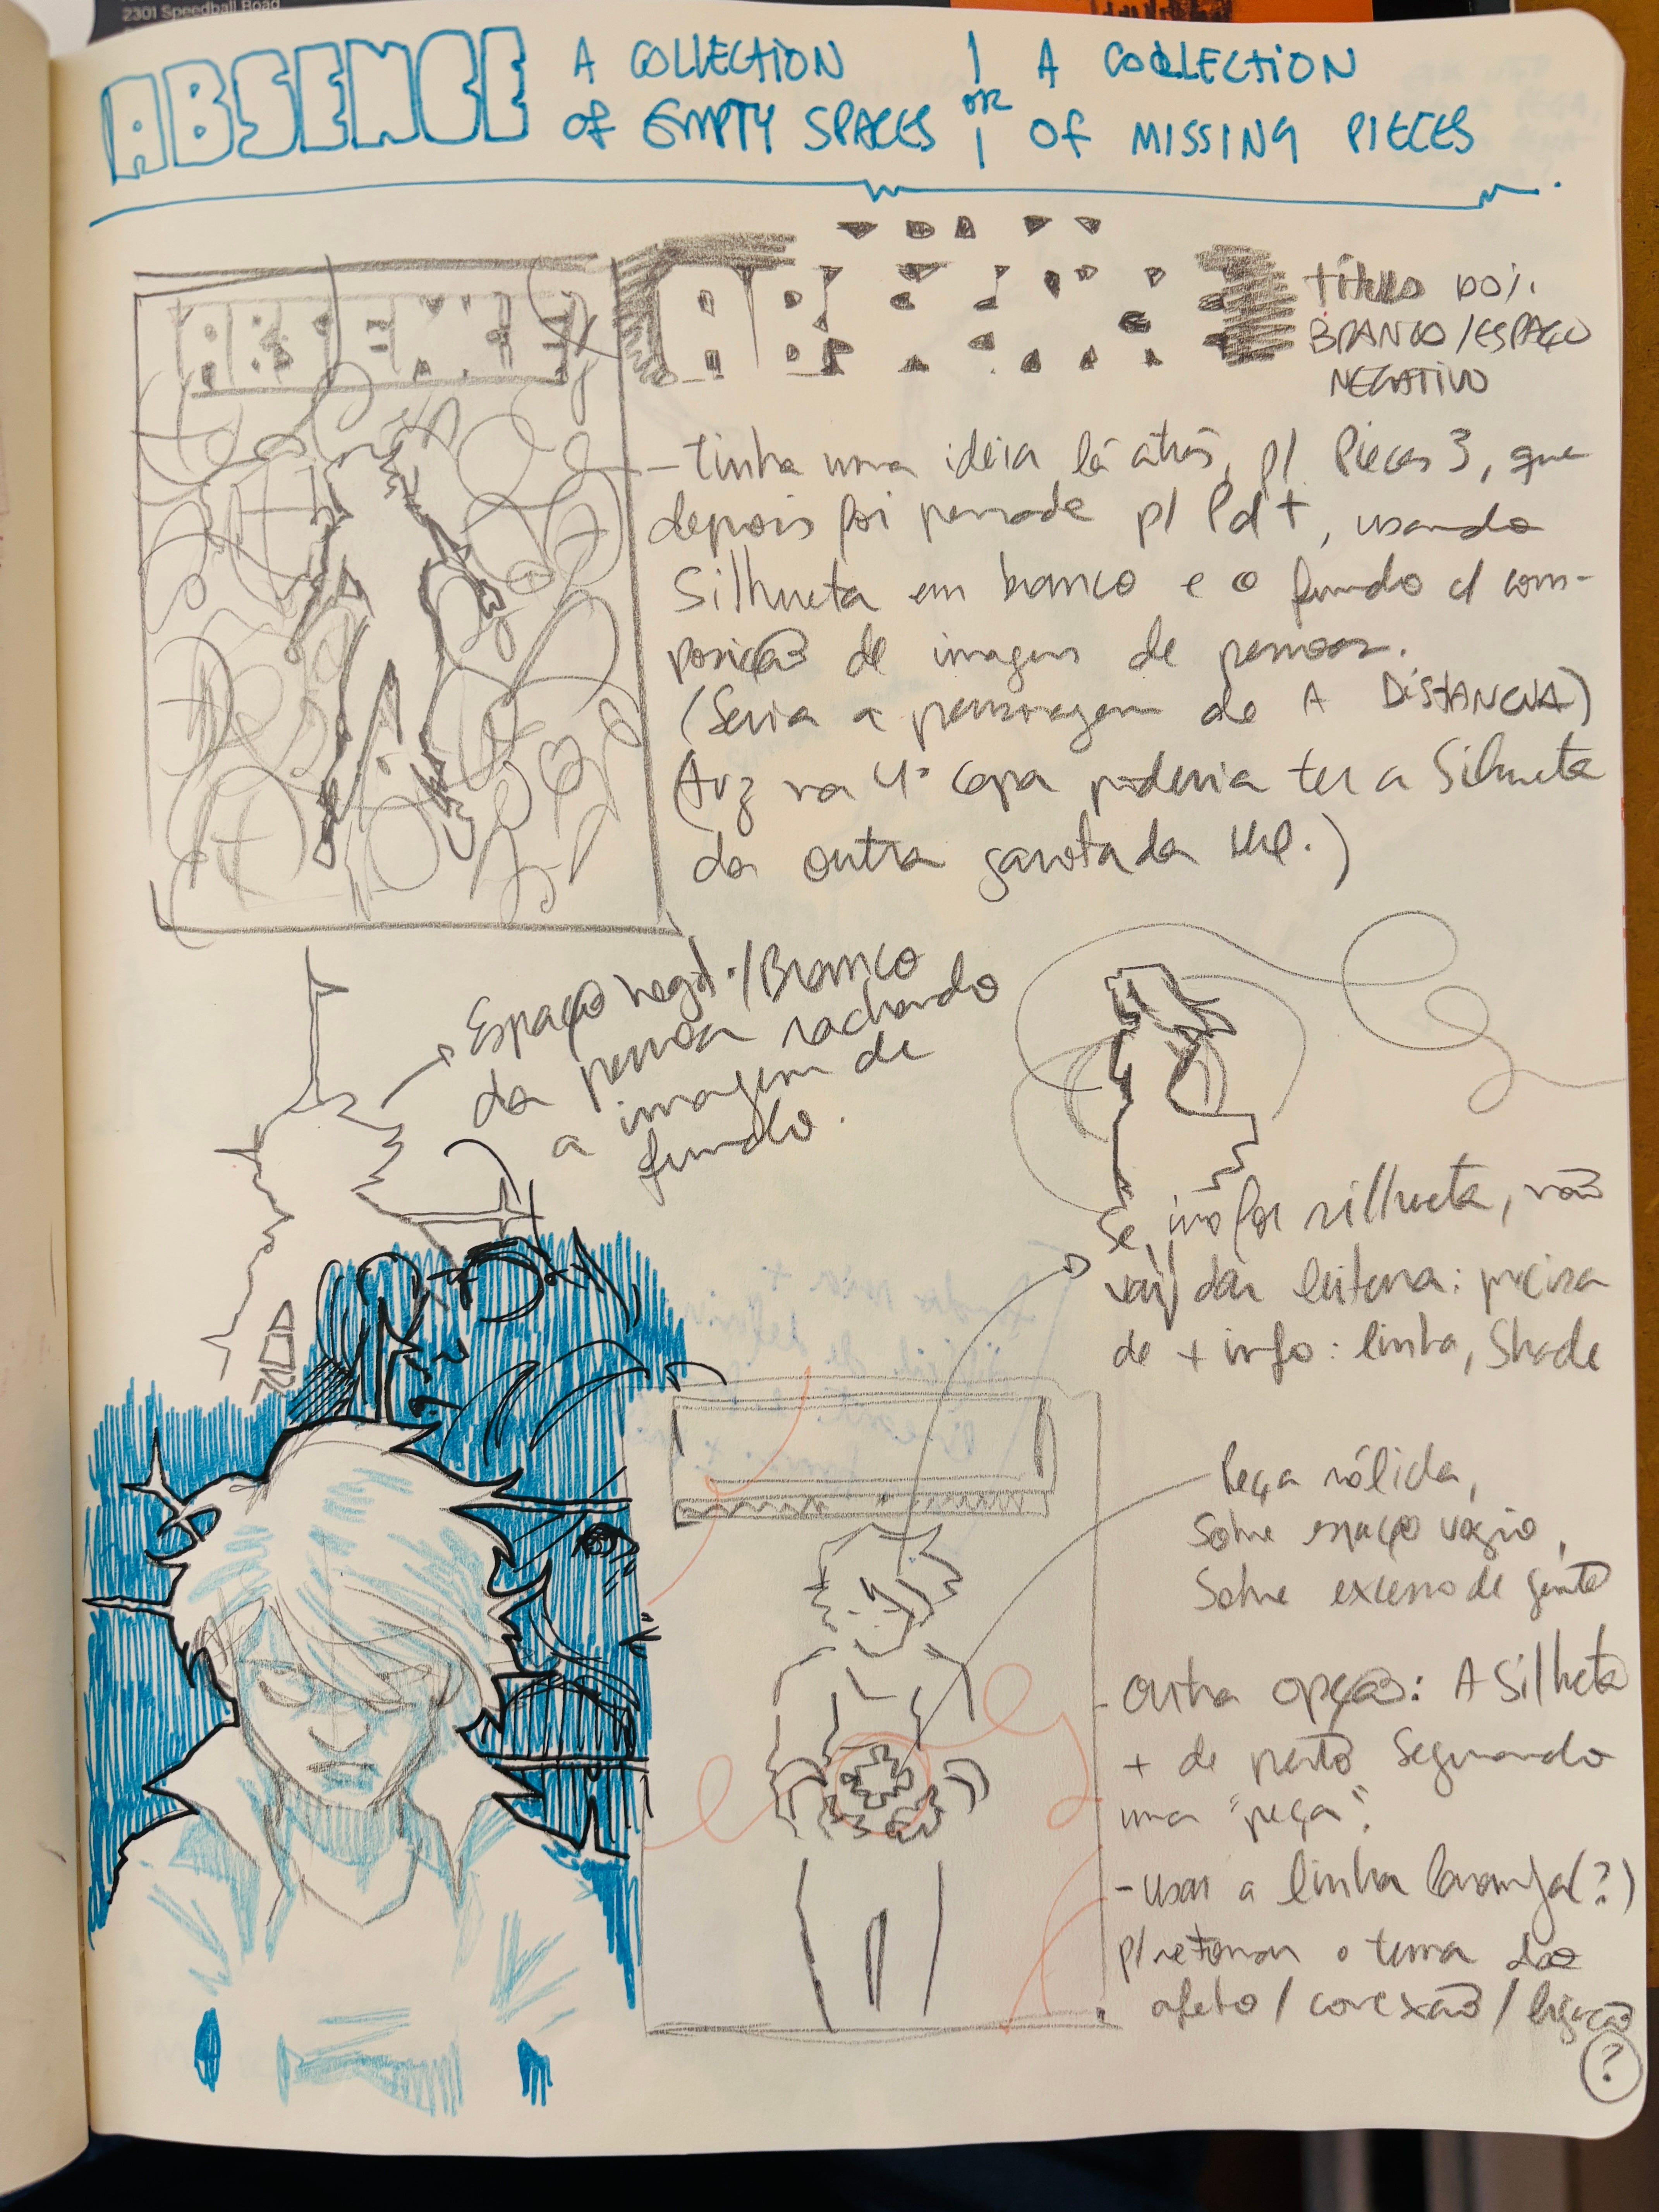 2301 Speedball Road
ABSENCE
A COLLECTION
OF EMPTY SPACES
OR
A COLLECTION
OF MISSING PIECES
ABSENCE
título 100%
BRANCO/ESPAÇO
NEGATIVO
- tinha uma ideia lá atrás, p/ Pieces 3, que
depois foi pensada p/ Pd+, usando
Silhueta em branco e o fundo c/ com-
posição de imagens de pessoas.
(Seria a personagem de A DISTANCIA)
(Avz na 4ª capa poderia ter a Silhueta
da outra garota da
Espaço negat./Branco
da pessoa rachando
a imagem de
fundo.
Se não for silhueta, não
vai dar leitura: precisa
de + info: linha, Shade
Peça sólida,
Sobre espaço vazio,
Sobre excesso de gente
- outra opção: A Silhueta
+ de perto Segurando
uma "peça".
- usar a linha laranja(?)
p/ retomar o tema do
afeto/conexão/ligação
?